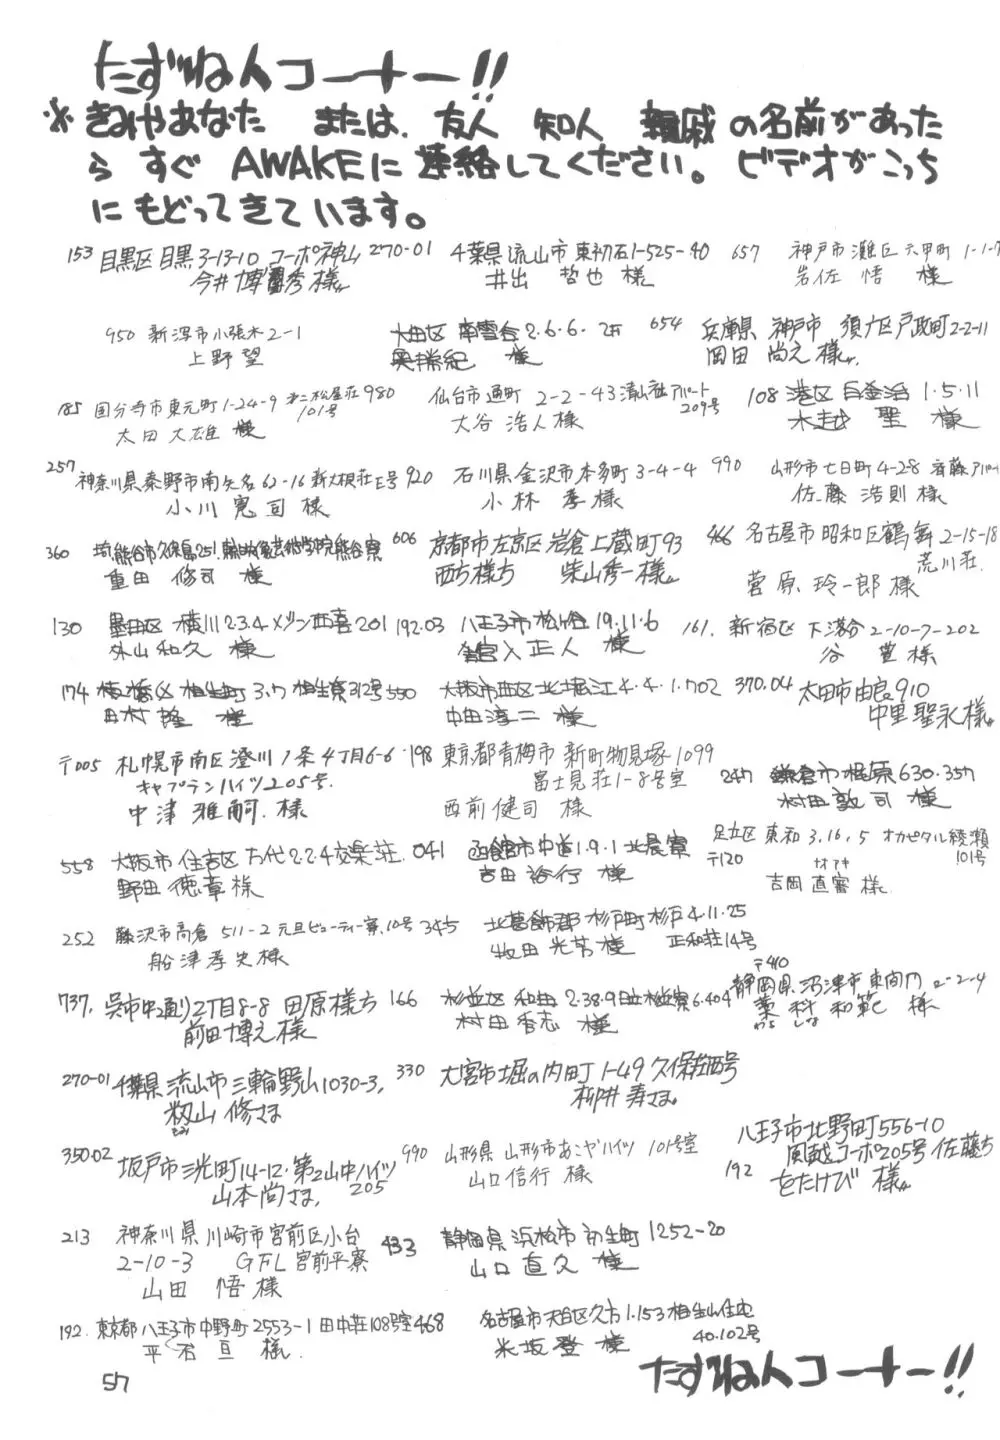 たずね人コーナー!!
※きみやあなた または、友人 知人 親戚の名前があった
ら すぐ AWAKEに連絡してください。ビデオがこっち
にもどってきています。
153 目黒区目黒3-13-10 コーポ神山
今井博秀様
270-01 千葉県流山市東初石1-525-40
井出 哲也 様
657 神戸市灘区六甲町1-1-
岩佐 悟 様
950 新潟市小張木2-1
上野望
大田区 南雪谷2.6.6.
奥 勝紀 様
654 兵庫県 神戸市 須广区戸政町2-2-11
岡田 尚之様
185 国分寺市東元町1-24-9 第二松屋荘101号
太田大雄 様
980 仙台市通町 2-2-43 アパート209号
大谷浩人様
108 港区白金台1.5.11
木越 聖 様
257 神奈川県秦野市南矢名62-16 新大根荘E号
小川 寛司 様
920 石川県金沢市本多町3-4-4
小林 孝様
990 山形市七日町4-28 斉藤アパート
佐藤浩則様
360 熊谷市久保島251 熊谷寮
重田 修司 様
606 京都市左京区岩倉上蔵町93
西方様方 柴山秀一様
466 名古屋市昭和区鶴舞2-15-18
荒川荘
菅原玲一郎様
130 墨田区 横川2.3.4 メゾン西喜201
外山和久 様
192.03 八王子市松が谷19.11.6
正人 様
161. 新宿区 下落合2-10-7-202
谷 豊様
174 板橋区 相生町 3.7 相生寮312号
田村 隆 様
550 大阪市西区北堀江4.4.1.702
中田淳二 様
370.04 太田市由良910
中里聖永様
〒005 札幌市南区澄川1条4丁目6-6
キャプテンハイツ205号.
中津雅嗣.様
198 東京都青梅市 新町物見塚1099
富士見荘1-8号室
西前健司 様
247 鎌倉市梶原630.357
村田敦司 様
558 大阪市住吉区万代2.2.4交楽荘.
野田徳章様
041 函館市中道1.9.1 北晨寮
吉田裕行 様
〒120 足立区東和3,16,5 オカピタル綾瀬
101号
ナオアキ
吉岡直審様
252 藤沢市高倉 511-2 元旦ビューティー寮10号
船津孝史様
345 北葛飾郡杉戸町杉戸4.11.25
正和荘14号
牧田光芳様
737. 呉市中通り2丁目8-8 田原様方
前田博之様
166 杉並区 和田2.38.9 日立杉並寮6.404
村田香志 様
〒410
静岡県沼津市東間門2-2-4
藁科 和範 様
わら しな
270-01 千葉県流山市三輪野山1030-3,
籾山 修さま
もみ
330 大宮市堀の内町1-49 久保荘西号
柳井寿さま
350.02 坂戸市三光町14-12.第2山中ハイツ205
山本尚さま.
990 山形県 山形市あこやハイツ 101号室
山口信行 様
192 八王子市北野町556-10
風越コーポ205号 佐藤方
をたけび 様
213 神奈川県川崎市宮前区小台
2-10-3 GFL宮前平寮
山田 悟様
433 静岡県浜松市初生町1252-20
山口直久 様
192. 東京都八王子市中野町2553-1 田中荘108号室
平石亘 様.
468 名古屋市天白区久方1.153相生山住宅
40.102号
米坂登 様
たずね人コーナー!!
57